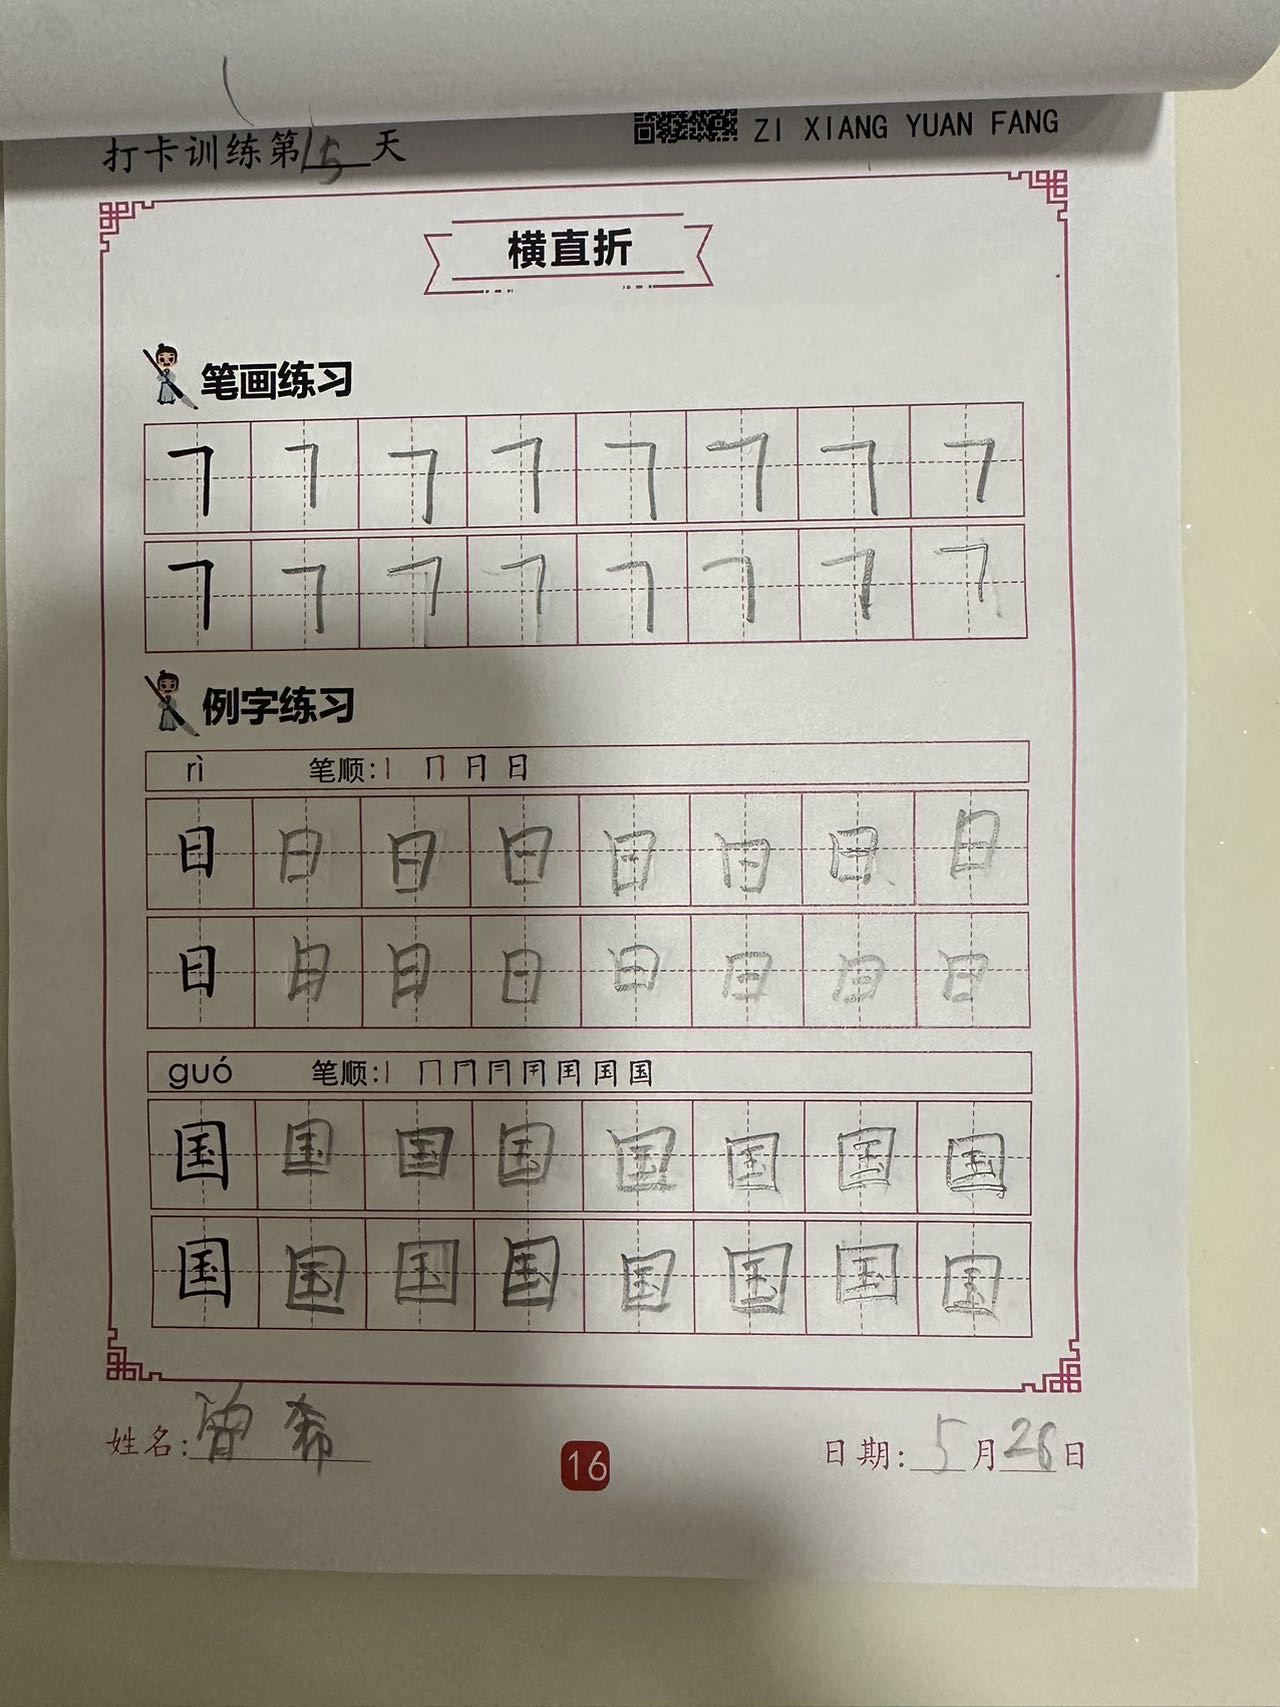 打卡训练第15天 ZI XIANG YUAN FANG
横直折
笔画练习
㇕ ㇕ ㇕ ㇕ ㇕ ㇕ ㇕ ㇕
㇕ ㇕ ㇕ ㇕ ㇕ ㇕ ㇕ ㇕
例字练习
rì 笔顺:丨 冂 月 日
日 日 日 日 日 日 日 日
日 日 日 日 日 日 日 日
guó 笔顺:
国 国 国 国 国 国 国 国
国 国 国 国 国 国 国 国
姓名:曾 希 16 日期:5月26日